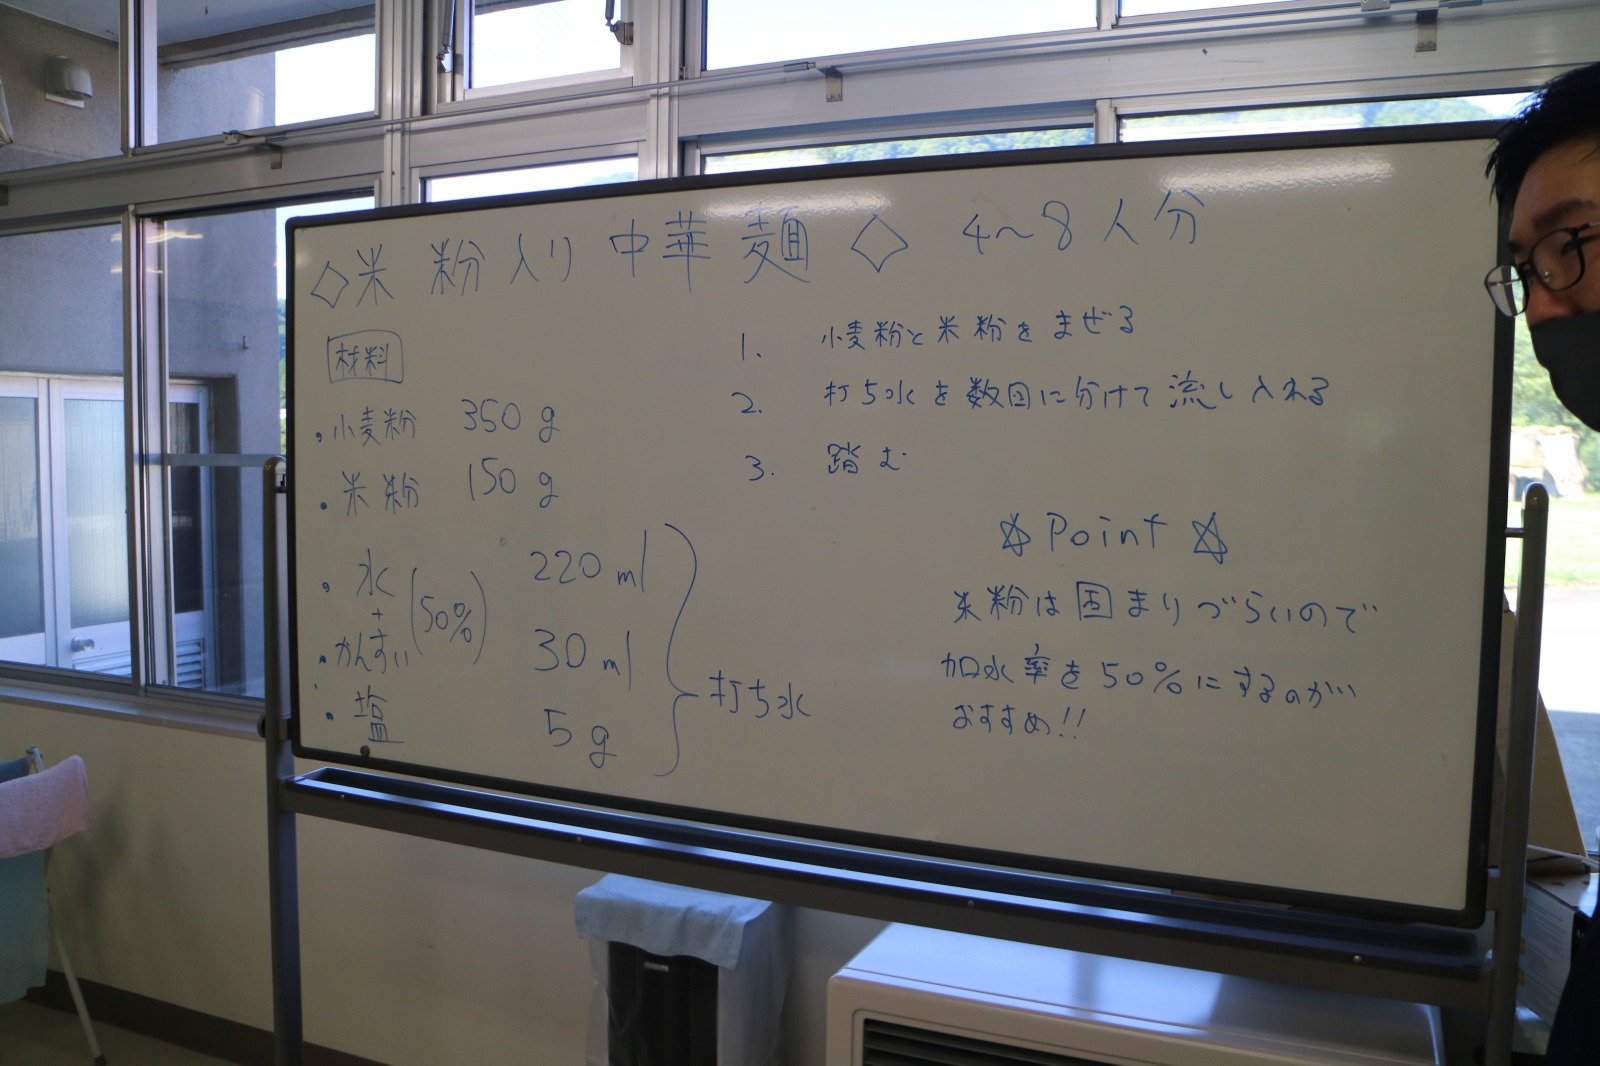 ◇米粉入り中華麺◇ 4〜8人分
材料
・小麦粉 350g
・米粉 150g
・水 220ml
+ (50%)
・かんすい 30ml
・塩 5g
打ち水
1. 小麦粉と米粉をまぜる
2. 打ち水を数回に分けて流し入れる
3. 踏む
☆Point☆
米粉は固まりづらいので
加水率を50%にするのが
おすすめ!!